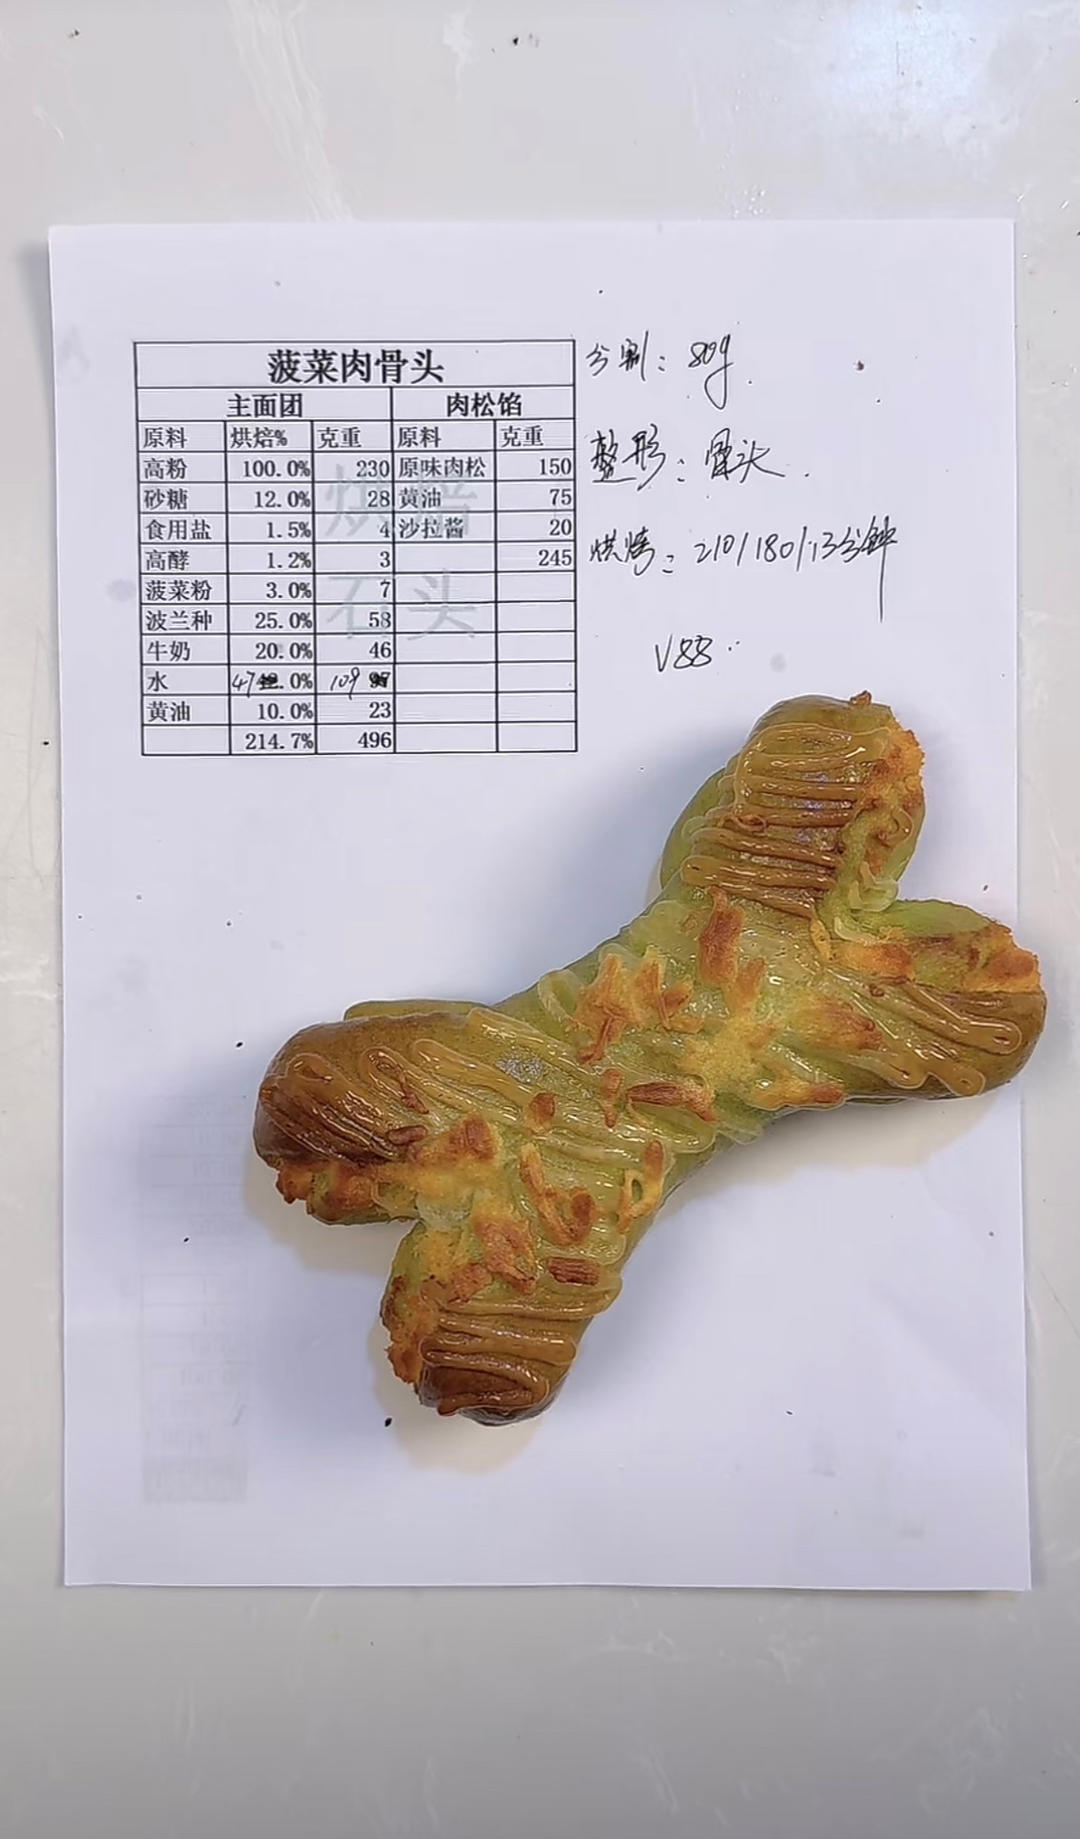 菠菜肉骨头
主面团 肉松馅
原料 烘焙% 克重 原料 克重
高粉 100.0% 230 原味肉松 150
砂糖 12.0% 28 黄油 75
食用盐 1.5% 4 沙拉酱 20
高酵 1.2% 3 245
菠菜粉 3.0% 7
波兰种 25.0% 58
牛奶 20.0% 46
水 47.0% 109
黄油 10.0% 23
214.7% 496
烘焙
石头
分割：80g.
整形：骨头.
烘烤：210/180/13分钟
V88..